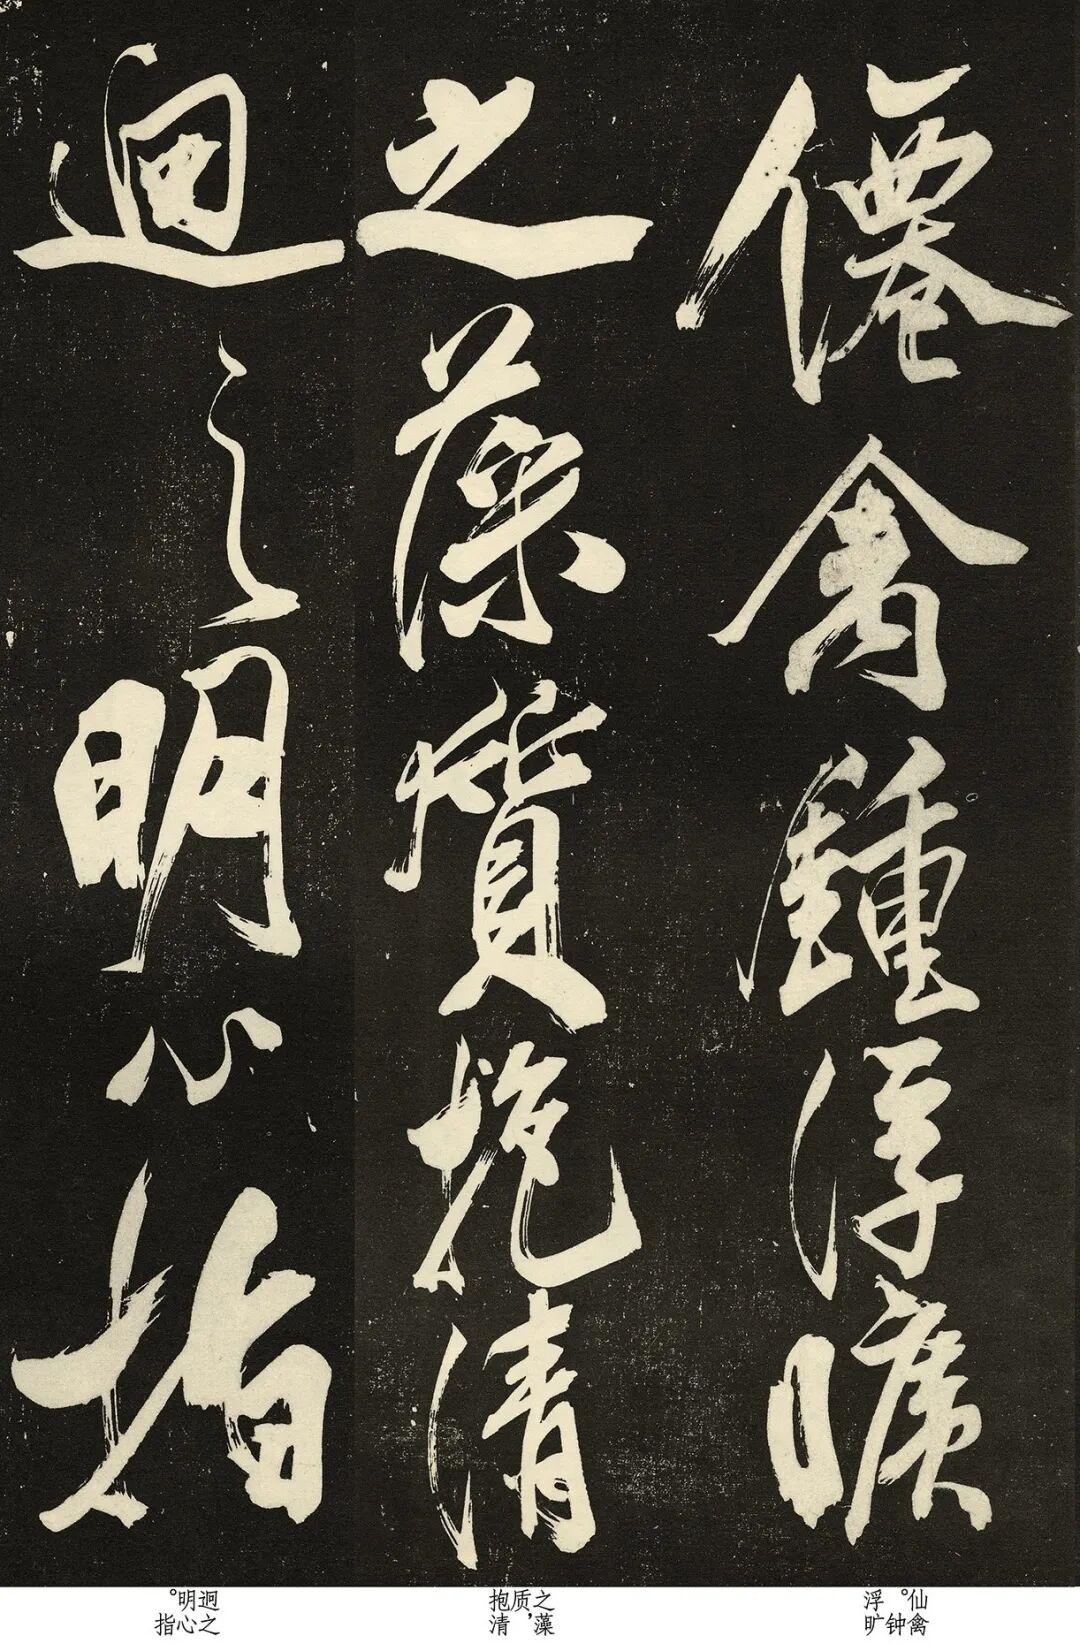 僊禽鍾浮曠
之藻質抱清
迥之明心指
仙禽。钟浮旷
之藻质，抱清
迥之明心。指